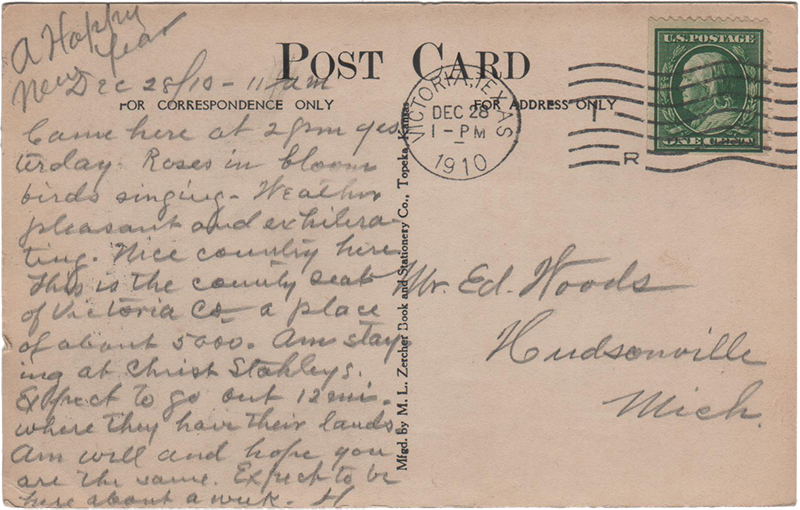 A Happy
New Year
POST CARD
Dec 28/10 - 11 am
FOR CORRESPONDENCE ONLY
FOR ADDRESS ONLY
Came here at 2 pm yes
terday. Roses in bloom
birds singing - Weather
pleasant and exhilera-
ting. Nice country here
This is the county seat
of Victoria Co - a place
of about 5000. Am stay
ing at Christ Stahleys.
Expect to go out 12 mis.
where they have their lands.
Am well and hope you
are the same. Expect to be
here about a week. H
Mfgd. by M. L. Zercher Book and Stationery Co., Topeka, Kansas
VICTORIA, TEXAS
DEC 28
1 - PM
1910
R
U.S. POSTAGE
ONE CENT
Mr. Ed. Woods
Hudsonville
Mich.